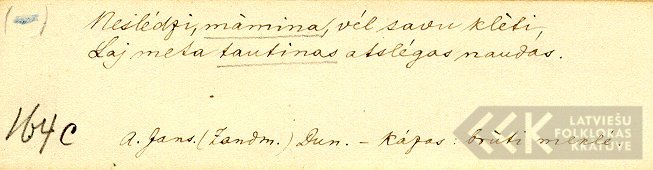 (—)
Neslēdzi, māmiņa, vēl savu klēti,
Laj meta tautiņas atslēgas naudas.
164c A. Jans. (Landm.) Dun. – Kāzas: brūti meklē.
LATVIEŠU
FOLKLORAS
KRĀTUVE